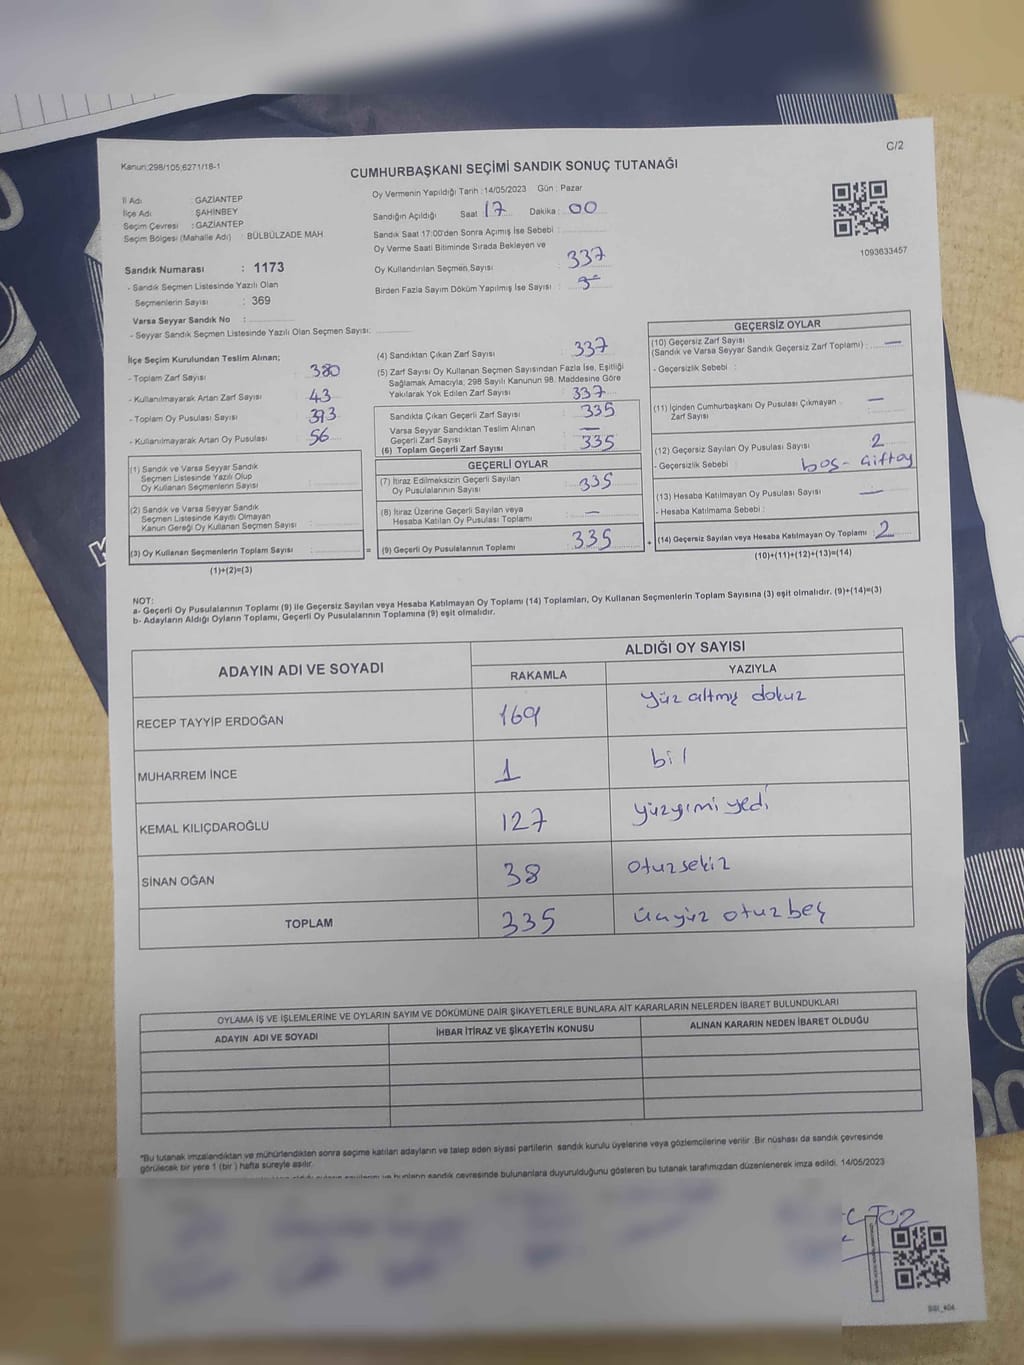 Kanun:298/105;6271/18-1
C/2
CUMHURBAŞKANI SEÇİMİ SANDIK SONUÇ TUTANAĞI
İl Adı : GAZİANTEP
İlçe Adı : ŞAHİNBEY
Seçim Çevresi : GAZİANTEP
Seçim Bölgesi (Mahalle Adı) : BÜLBÜLZADE MAH.
Sandık Numarası : 1173
- Sandık Seçmen Listesinde Yazılı Olan
Seçmenlerin Sayısı : 369
Varsa Seyyar Sandık No :
- Seyyar Sandık Seçmen Listesinde Yazılı Olan Seçmen Sayısı:
Oy Vermenin Yapıldığı Tarih : 14/05/2023 Gün : Pazar
Sandığın Açıldığı Saat : 17 Dakika : 00
Sandık Saat 17:00'den Sonra Açılmış İse Sebebi :
Oy Verme Saati Bitiminde Sırada Bekleyen ve
Oy Kullandırılan Seçmen Sayısı : 337
Birden Fazla Sayım Döküm Yapılmış İse Sayısı :
1093633457
İlçe Seçim Kurulundan Teslim Alınan;
- Toplam Zarf Sayısı : 380
- Kullanılmayarak Artan Zarf Sayısı : 43
- Toplam Oy Pusulası Sayısı : 393
- Kullanılmayarak Artan Oy Pusulası : 56
(1) Sandık ve Varsa Seyyar Sandık
Seçmen Listesinde Yazılı Olup
Oy Kullanan Seçmenlerin Sayısı :
(2) Sandık ve Varsa Seyyar Sandık
Seçmen Listesinde Kayıtlı Olmayan
Kanun Gereği Oy Kullanan Seçmen Sayısı :
(3) Oy Kullanan Seçmenlerin Toplam Sayısı : =
(1)+(2)=(3)
(4) Sandıktan Çıkan Zarf Sayısı : 337
(5) Zarf Sayısı Oy Kullanan Seçmen Sayısından Fazla İse, Eşitliği
Sağlamak Amacıyla; 298 Sayılı Kanunun 98. Maddesine Göre
Yakılarak Yok Edilen Zarf Sayısı : 337
Sandıkta Çıkan Geçerli Zarf Sayısı : 335
Varsa Seyyar Sandıktan Teslim Alınan
Geçerli Zarf Sayısı : —
(6) Toplam Geçerli Zarf Sayısı : 335
GEÇERLİ OYLAR
(7) İtiraz Edilmeksizin Geçerli Sayılan
Oy Pusulalarının Sayısı : 335
(8) İtiraz Üzerine Geçerli Sayılan veya
Hesaba Katılan Oy Pusulası Toplamı : —
(9) Geçerli Oy Pusulalarının Toplamı : 335 +
GEÇERSİZ OYLAR
(10) Geçersiz Zarf Sayısı
(Sandık ve Varsa Seyyar Sandık Geçersiz Zarf Toplamı) : —
- Geçersizlik Sebebi :
(11) İçinden Cumhurbaşkanı Oy Pusulası Çıkmayan
Zarf Sayısı : —
(12) Geçersiz Sayılan Oy Pusulası Sayısı : 2
- Geçersizlik Sebebi : boş - çiftoy
(13) Hesaba Katılmayan Oy Pusulası Sayısı : —
- Hesaba Katılmama Sebebi :
(14) Geçersiz Sayılan veya Hesaba Katılmayan Oy Toplamı : 2
(10)+(11)+(12)+(13)=(14)
NOT:
a- Geçerli Oy Pusulalarının Toplamı (9) ile Geçersiz Sayılan veya Hesaba Katılmayan Oy Toplamı (14) Toplamları, Oy Kullanan Seçmenlerin Toplam Sayısına (3) eşit olmalıdır. (9)+(14)=(3)
b- Adayların Aldığı Oyların Toplamı, Geçerli Oy Pusulalarının Toplamına (9) eşit olmalıdır.
ADAYIN ADI VE SOYADI ALDIĞI OY SAYISI
RAKAMLA YAZIYLA
RECEP TAYYİP ERDOĞAN 169 yüz altmış dokuz
MUHARREM İNCE 1 bir
KEMAL KILIÇDAROĞLU 127 yüzyirmi yedi
SİNAN OĞAN 38 otuzsekiz
TOPLAM 335 üçyüz otuz beş
OYLAMA İŞ VE İŞLEMLERİNE VE OYLARIN SAYIM VE DÖKÜMÜNE DAİR ŞİKAYETLERLE BUNLARA AİT KARARLARIN NELERDEN İBARET BULUNDUKLARI
ADAYIN ADI VE SOYADI İHBAR İTİRAZ VE ŞİKAYETİN KONUSU ALINAN KARARIN NEDEN İBARET OLDUĞU
*Bu tutanak imzalandıktan ve mühürlendikten sonra seçime katılan adayların ve talep eden siyasi partilerin sandık kurulu üyelerine veya gözlemcilerine verilir. Bir nüshası da sandık çevresinde
görülecek bir yere 1 (bir) hafta süreyle asılır.
ve bunların sandık çevresinde bulunanlara duyurulduğunu gösteren bu tutanak tarafımızdan düzenlenerek imza edildi. 14/05/2023